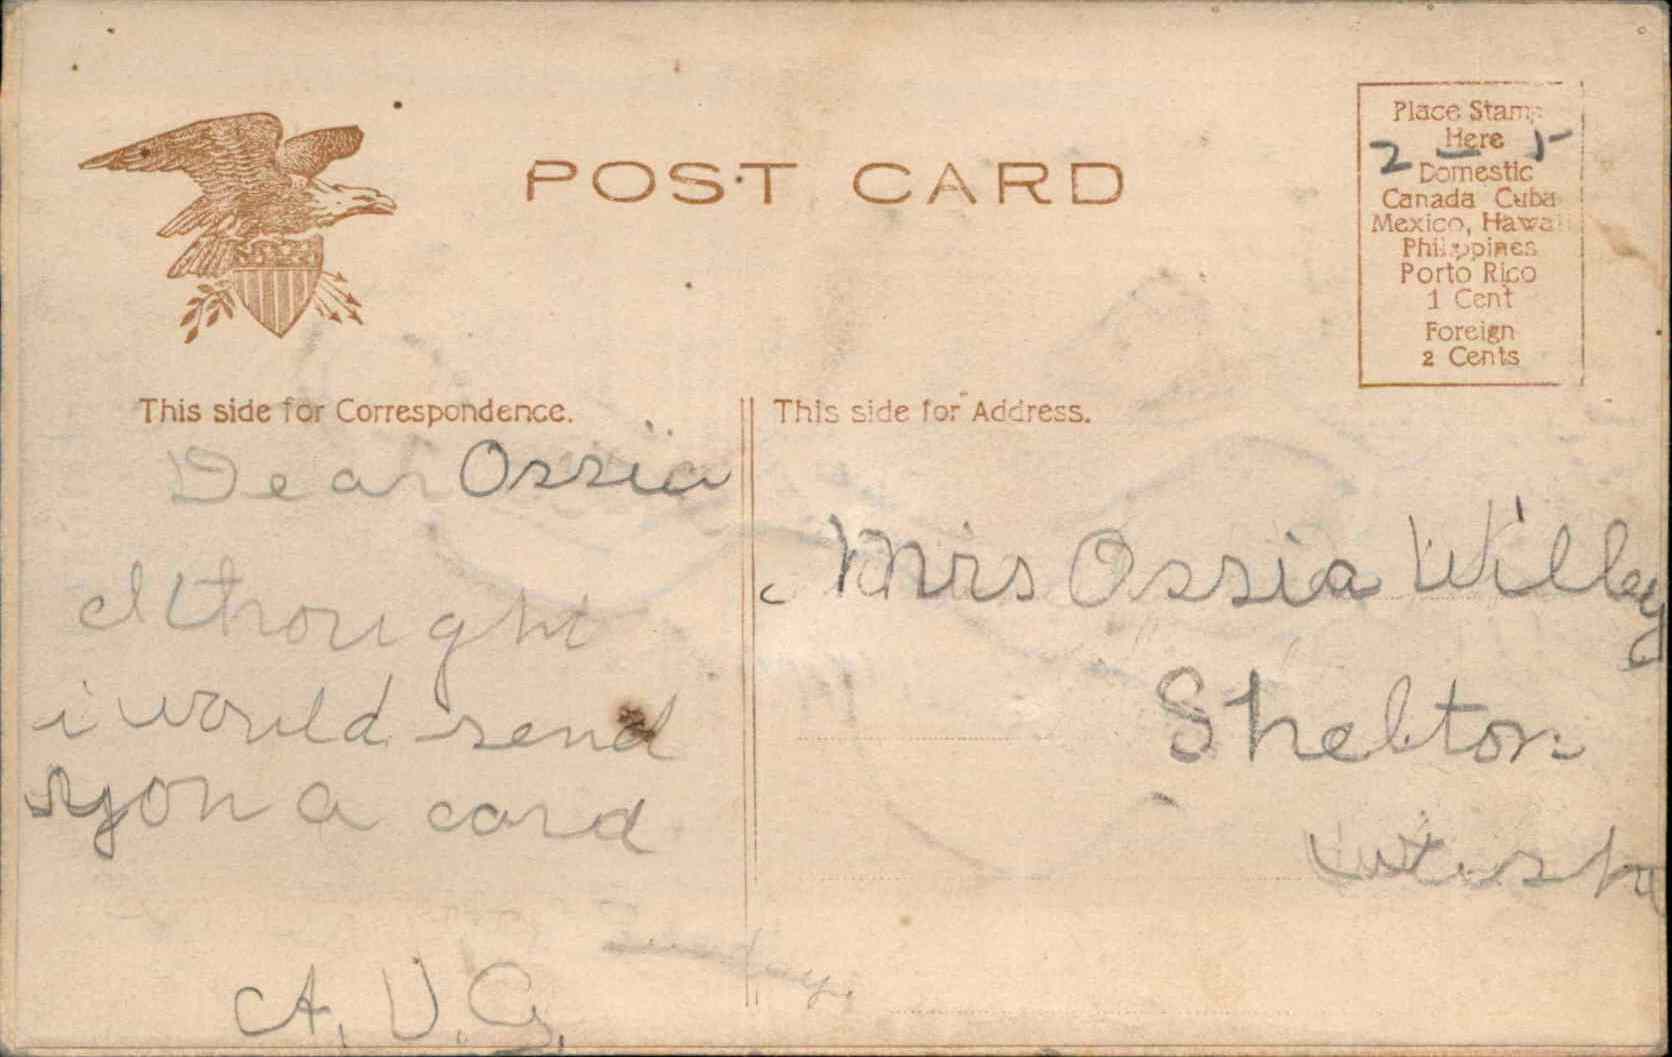 POST CARD
Place Stamp
Here
2 - 5
Domestic
Canada Cuba
Mexico, Hawaii
Philippines
Porto Rico
1 Cent
Foreign
2 Cents
This side for Correspondence.
Dear Ossia
I thought
i would send
you a card
A. V. G.
This side for Address.
Mrs Ossia Willey
Shelton
Wash